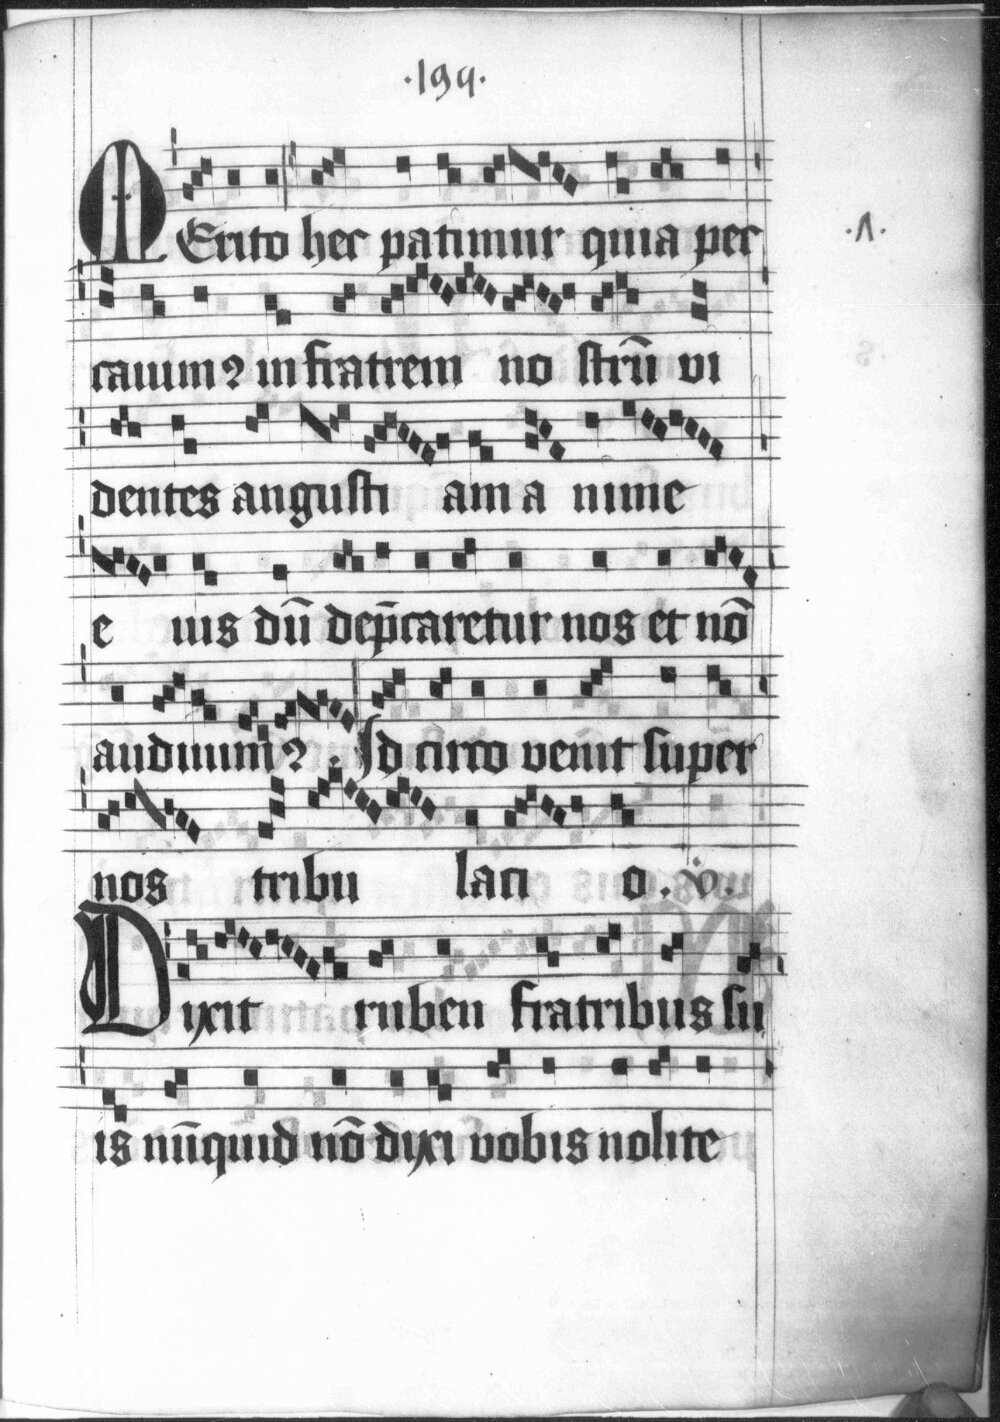 .199.
MErito hec patimur quia pec
.A.
cauimꝯ in fratrem no strū vi
dentes angusti am a nime
e ius dū dep̄caretur nos et nō
audiuimꝯ. Idcirco venit super
nos tribu laci o. v̇.
Dixit ruben fratribus su
is nūquid nō dixi vobis nolite